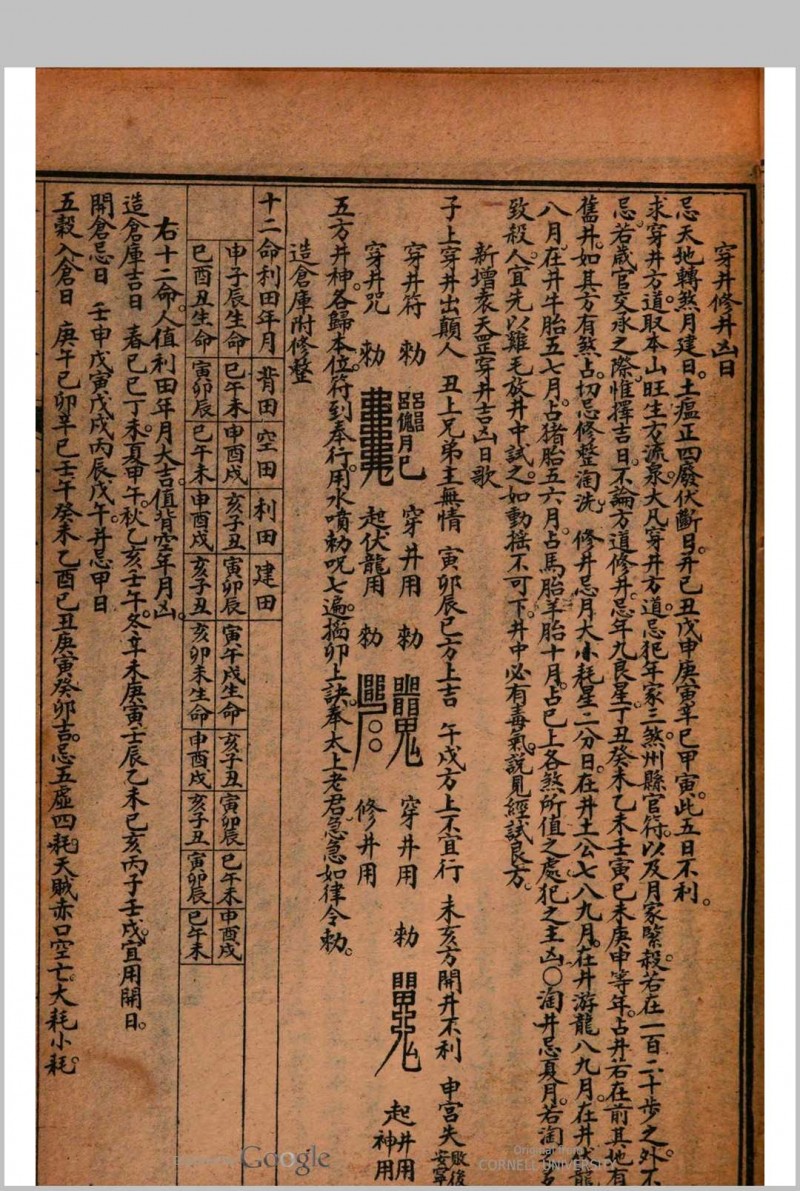 穿井修井凶日
忌天地轉煞月建日土瘟正四廢伏斷日并己丑戊申庚寅辛巳甲寅此五日不利。
求穿井方道取本山旺生方流泉大凡穿井方道忌犯年家三煞州縣官符以及月家緊殺若在一百二十步之外不
忌若歲官交承之際惟擇吉日不論方道修井忌年九良星丁丑癸未乙未壬寅己未庚申等年占井若在前其地有
舊井如其方有煞占切忌修整淘洗 修井忌月大小耗星二分日在井土公七八九月在井游龍八九月在井伏龍
八月在井牛胎五七月占猪胎五六月占馬胎羊胎十月占已上各煞所值之處犯之主凶○淘井忌夏月若淘
致殺人宜先以雞毛放井中試之如動搖不可下井中必有毒氣說見經試良方
新增袁天罡穿井吉凶日歌
子上穿井出顛人 丑上兄弟主無情 寅卯辰巳方上吉 午戌方上不宜行 未亥方開井不利 申宮失 敗後安寧
穿井符 勅 穿井用 勅 穿井用 勅 起井神用
穿井咒 勅 起伏龍用 勅 修井用
五方井神各歸本位符到奉行用水噴勅呪七遍搯卯上訣奉太上老君急急如律令勅。
造倉庫附修整
十二命利田年月 背田 空田 利田 建田
申子辰生命 巳午未 申酉戌 亥子丑 寅卯辰 寅午戌生命 亥子丑 寅卯辰 巳午未 申酉戌
巳酉丑生命 寅卯辰 巳午未 申酉戌 亥子丑 亥卯未生命 申酉戌 亥子丑 寅卯辰 巳午未
右十二命人值利田年月大吉值背空年月凶
造倉庫吉日 春己巳丁未夏甲午秋乙亥壬午冬辛未庚寅壬辰乙未己亥丙子壬戌宜用開日。
開倉忌日 壬申戊寅戊戌丙辰戊午并忌甲日
五穀入倉日 庚午己卯辛巳壬午癸未乙酉己丑庚寅癸卯吉忌五虛四耗天賊赤口空亡大耗小耗
Google
Original from
CORNELL UNIVERSITY